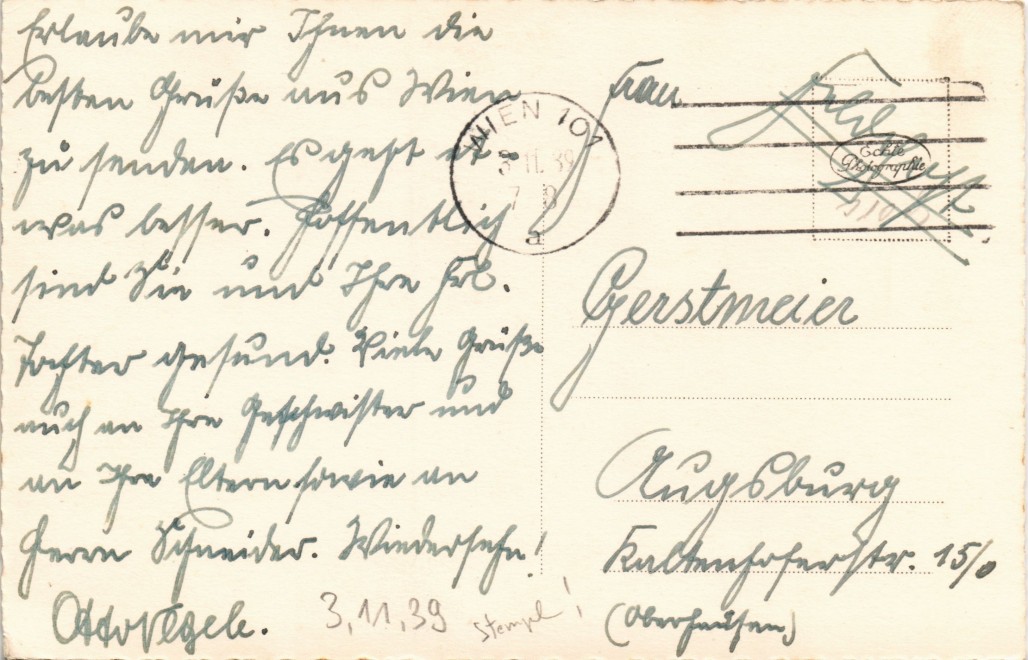 Erlaube mir Ihnen die
besten Grüße aus Wien
zu senden. Es geht et
was besser. Hoffentlich
sind Sie und Ihre Frl.
Tochter gesund. Viele Grüße
auch an Ihre Geschwister und
an Ihre Eltern sowie an
Herrn Schneider. Wiedersehn!
Otto
3,11,39 Stempel!
WIEN 101
3 11. 39
7
a
Frau
Echte
Photographie
Gerstmeier
Augsburg
Kaltenhoferstr. 15/0
(Oberhausen)